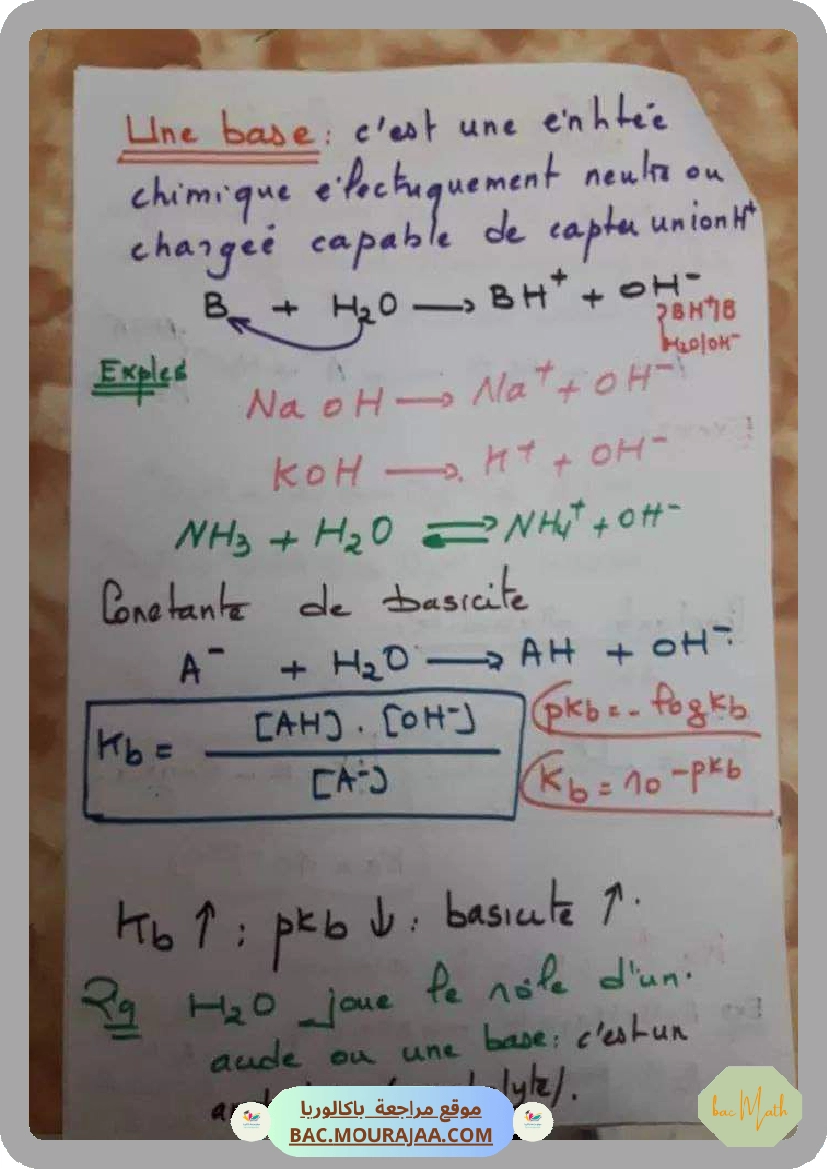 Une base : c'est une entitée
chimique électriquement neutre ou
chargeé capable de capter un ion H⁺
B + H₂O → BH⁺ + OH⁻
BH⁺/B
H₂O/OH⁻
Exples
NaOH → Na⁺ + OH⁻
KOH → K⁺ + OH⁻
NH₃ + H₂O ⇌ NH₄⁺ + OH⁻
Constante de basicite
A⁻ + H₂O → AH + OH⁻
Kb = [AH] . [OH⁻] / [A⁻]
pkb = - log kb
Kb = 10^-pkb
Kb ↑ ; pkb ↓ : basicité ↑.
Rq H₂O joue le rôle d'un
acide ou une base : c'est un
موقع مراجعة باكالوريا
BAC.MOURAJAA.COM
bac Math